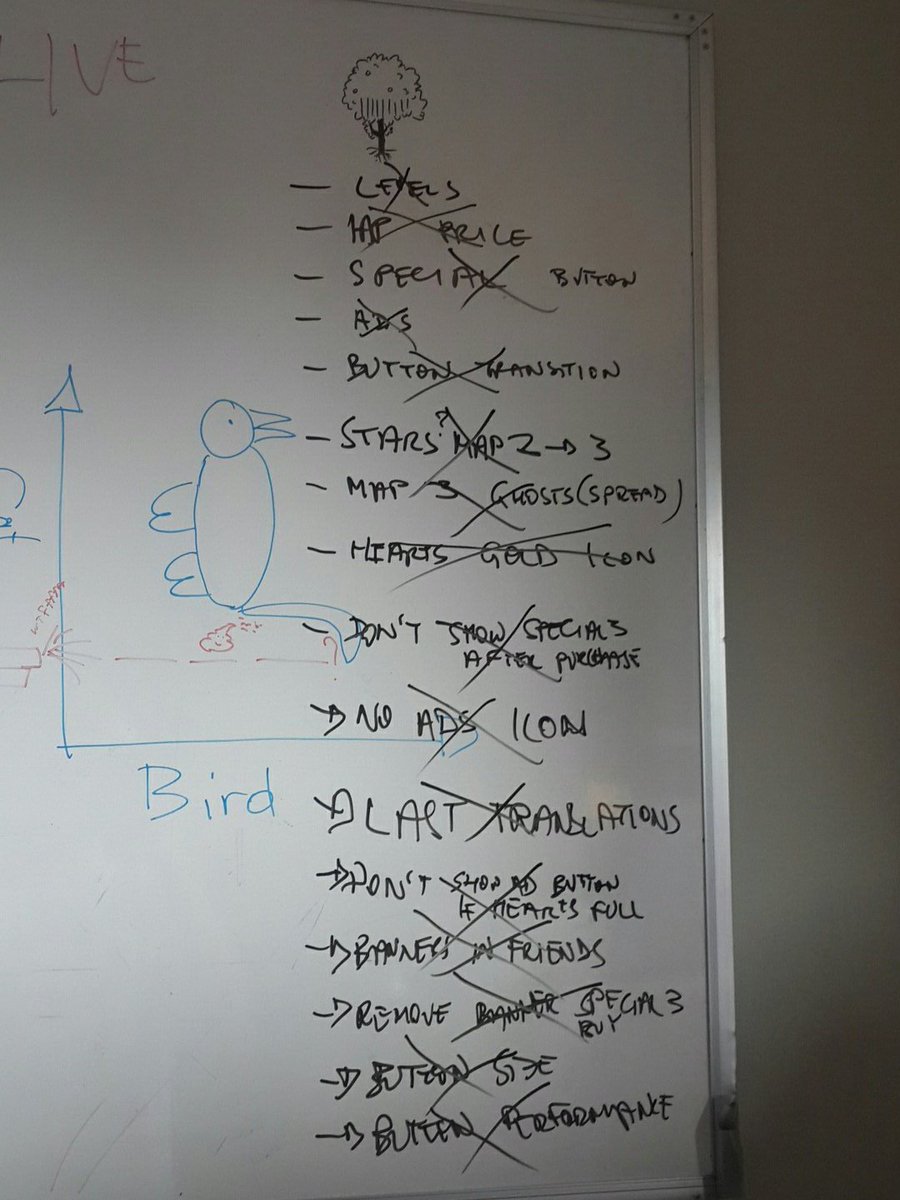 LIVE
- LEVELS
- IAP PRICE
- SPECIAL BUTTON
- ADS
- BUTTON TRANSITION
- STARS MAP 2 → 3
- MAP 3 GHOSTS (SPREAD)
- HEARTS GOLD ICON
- DON'T SHOW SPECIAL 3
AFTER PURCHASE
→ NO ADS ICON
Bird
→ LAST TRANSLATIONS
→ DON'T SHOW AD BUTTON
IF HEARTS FULL
→ BANNERS IN FRIENDS
→ REMOVE BANNER SPECIAL 3
BUY
→ BUTTON SIZE
→ BUTTON PERFORMANCE